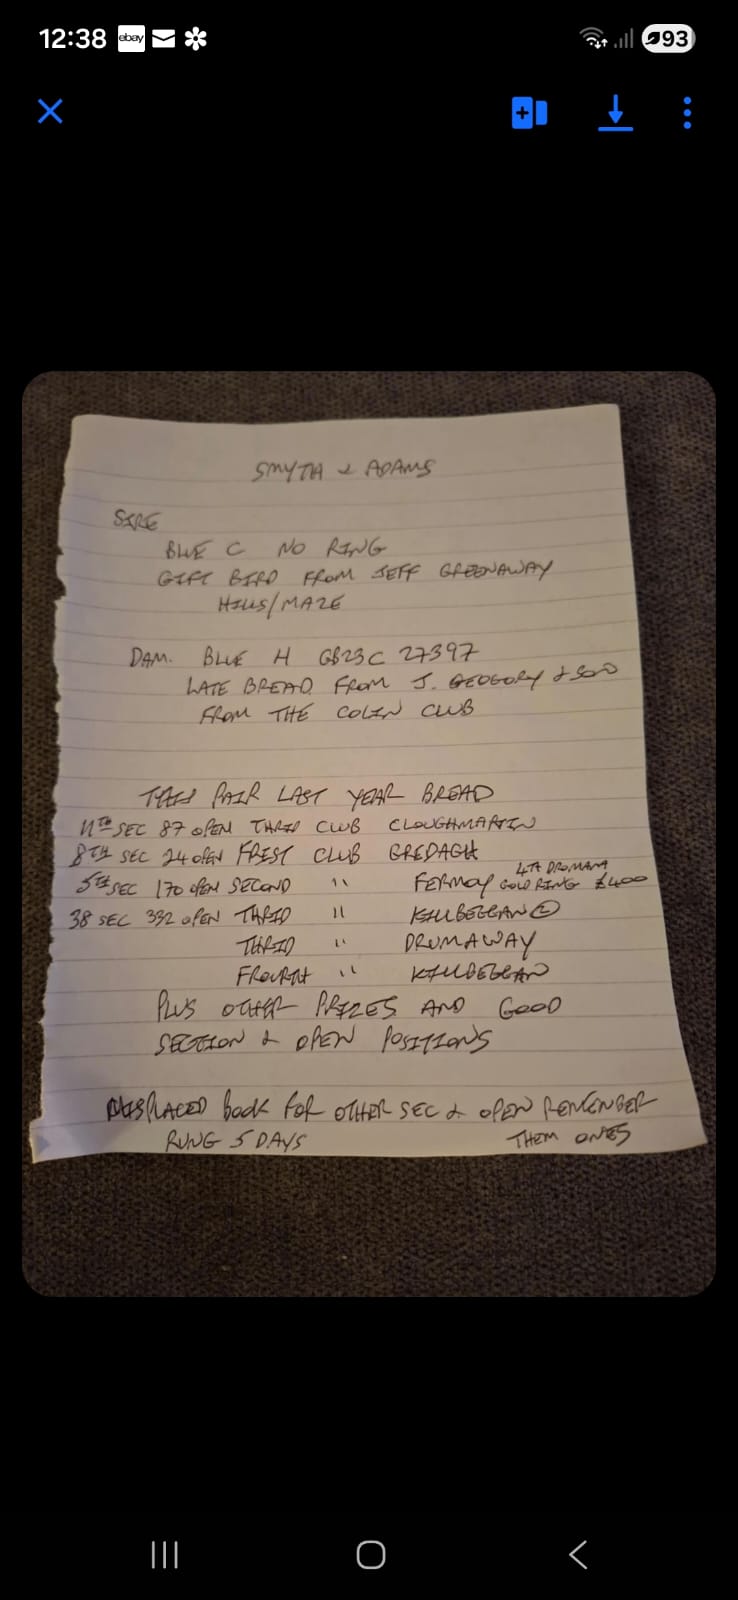 12:38 ebay 93
SMYTH & ADAMS
SIRE
BLUE C NO RING
GIFT BIRD FROM JEFF GREENAWAY
HILLS/MAZE
DAM. BLUE H GB23C 27397
LATE BREAD FROM J. GEOGORY & SON
FROM THE COLIN CLUB
THIS PAIR LAST YEAR BREAD
11TH SEC 87 OPEN THRID CLUB CLOUGHMARTIN
8TH SEC 24 OPEN FRIST CLUB GREDAGH
4TH DROMANA
5TH SEC 170 OPEN SECOND " FERMOY GOLD RING £400
38 SEC 332 OPEN THRID " KILLBEGGAN
THRID " DRUMAWAY
FROURTH " KILLBEGGAN
PLUS OTHER PRIZES AND GOOD
SECTION & OPEN POSITIONS
MISPLACED BOOK FOR OTHER SEC & OPEN REMENBER
RUNG 5 DAYS THEM ONES